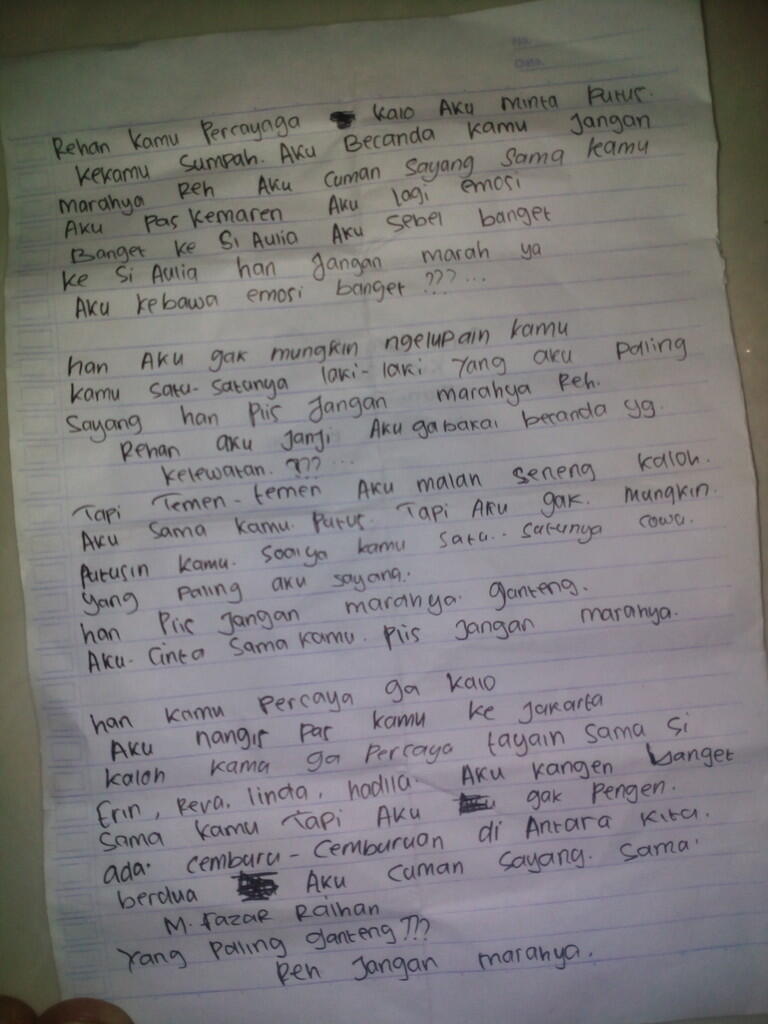 No.
Date.
Rehan kamu Percayaga kalo Aku minta Putus.
kekamu sumpah. Aku Becanda kamu Jangan
marahya Reh Aku cuman sayang sama kamu
Aku pas kemaren Aku lagi emosi
Banget ke Si Aulia Aku sebel banget
ke si Aulia han Jangan marah ya
Aku kebawa emosi banget ???...
han Aku gak mungkin ngelupain kamu
kamu satu-satunya laki-laki Yang aku paling
Sayang han Plis Jangan marahya Reh.
Rehan aku Janji Aku gabakal becanda yg.
kelewatan. ???...
Tapi Temen-temen Aku malah seneng kaloh.
Aku sama kamu. Putus. Tapi Aku gak. mungkin.
Putusin kamu. soalya kamu satu.. satunya cowo.
yang paling aku sayang.
han Plis Jangan marahya. ganteng.
Aku. Cinta sama kamu. Plis Jangan marahya.
han kamu percaya ga kalo
Aku nangis pas kamu ke Jakarta
kaloh kama ga percaya tayain sama si
Erin, Reva, linda, hadila. Aku kangen banget
sama kamu Tapi Aku gak Pengen.
ada. cemburu-cemburuan di Antara kita.
berdua Aku cuman sayang. sama.
M. fazar Raihan
Yang Paling ganteng???
Reh Jangan marahya.